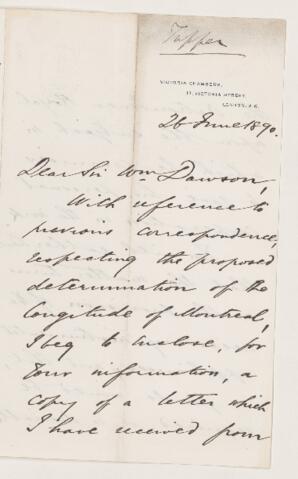 Tupper
VICTORIA CHAMBERS,
17, VICTORIA STREET,
LONDON, S.W.
26 June 1890.
Dear Sir Wm Dawson,
With reference to
previous correspondence,
respecting the proposed
determination of the
longitude of Montreal,
I beg to enclose, for
your information, a
copy of a letter which
I have received from